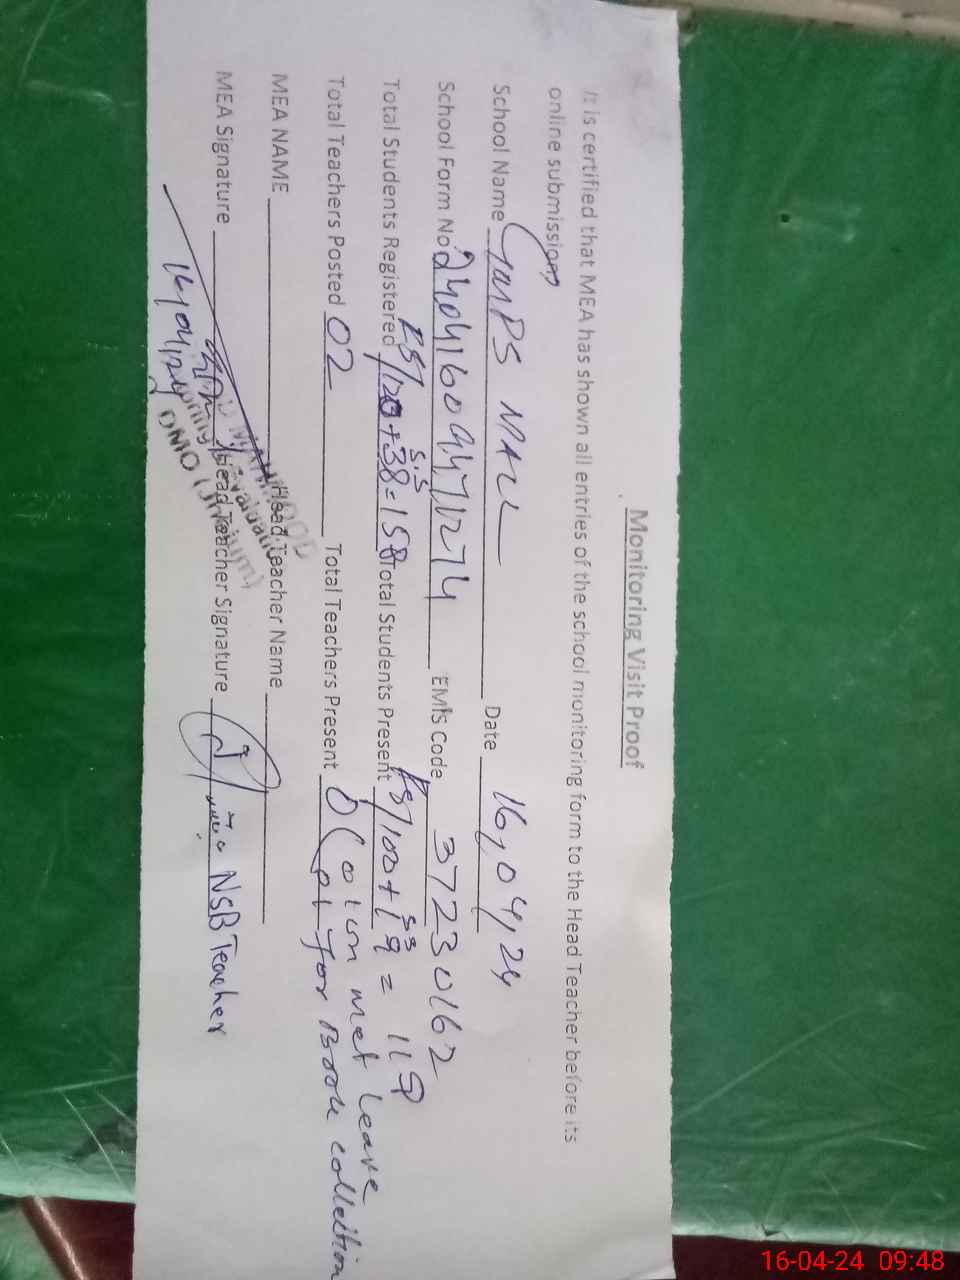 Monitoring Visit Proof
It is certified that MEA has shown all entries of the school monitoring form to the Head Teacher before its
online submission,
School Name GGPS MALL Date 16,04,24
School Form No. 24041609471274 EMIS Code 37230162
Total Students Registered KS/120+38=158 Total Students Present KS/100+19=119
Total Teachers Posted 02 Total Teachers Present 0 (
met leave
for Book collection
MEA NAME Head Teacher Name
MEA Signature Head Teacher Signature NSB Teacher
16/04/24
DMO
16-04-24 09:48